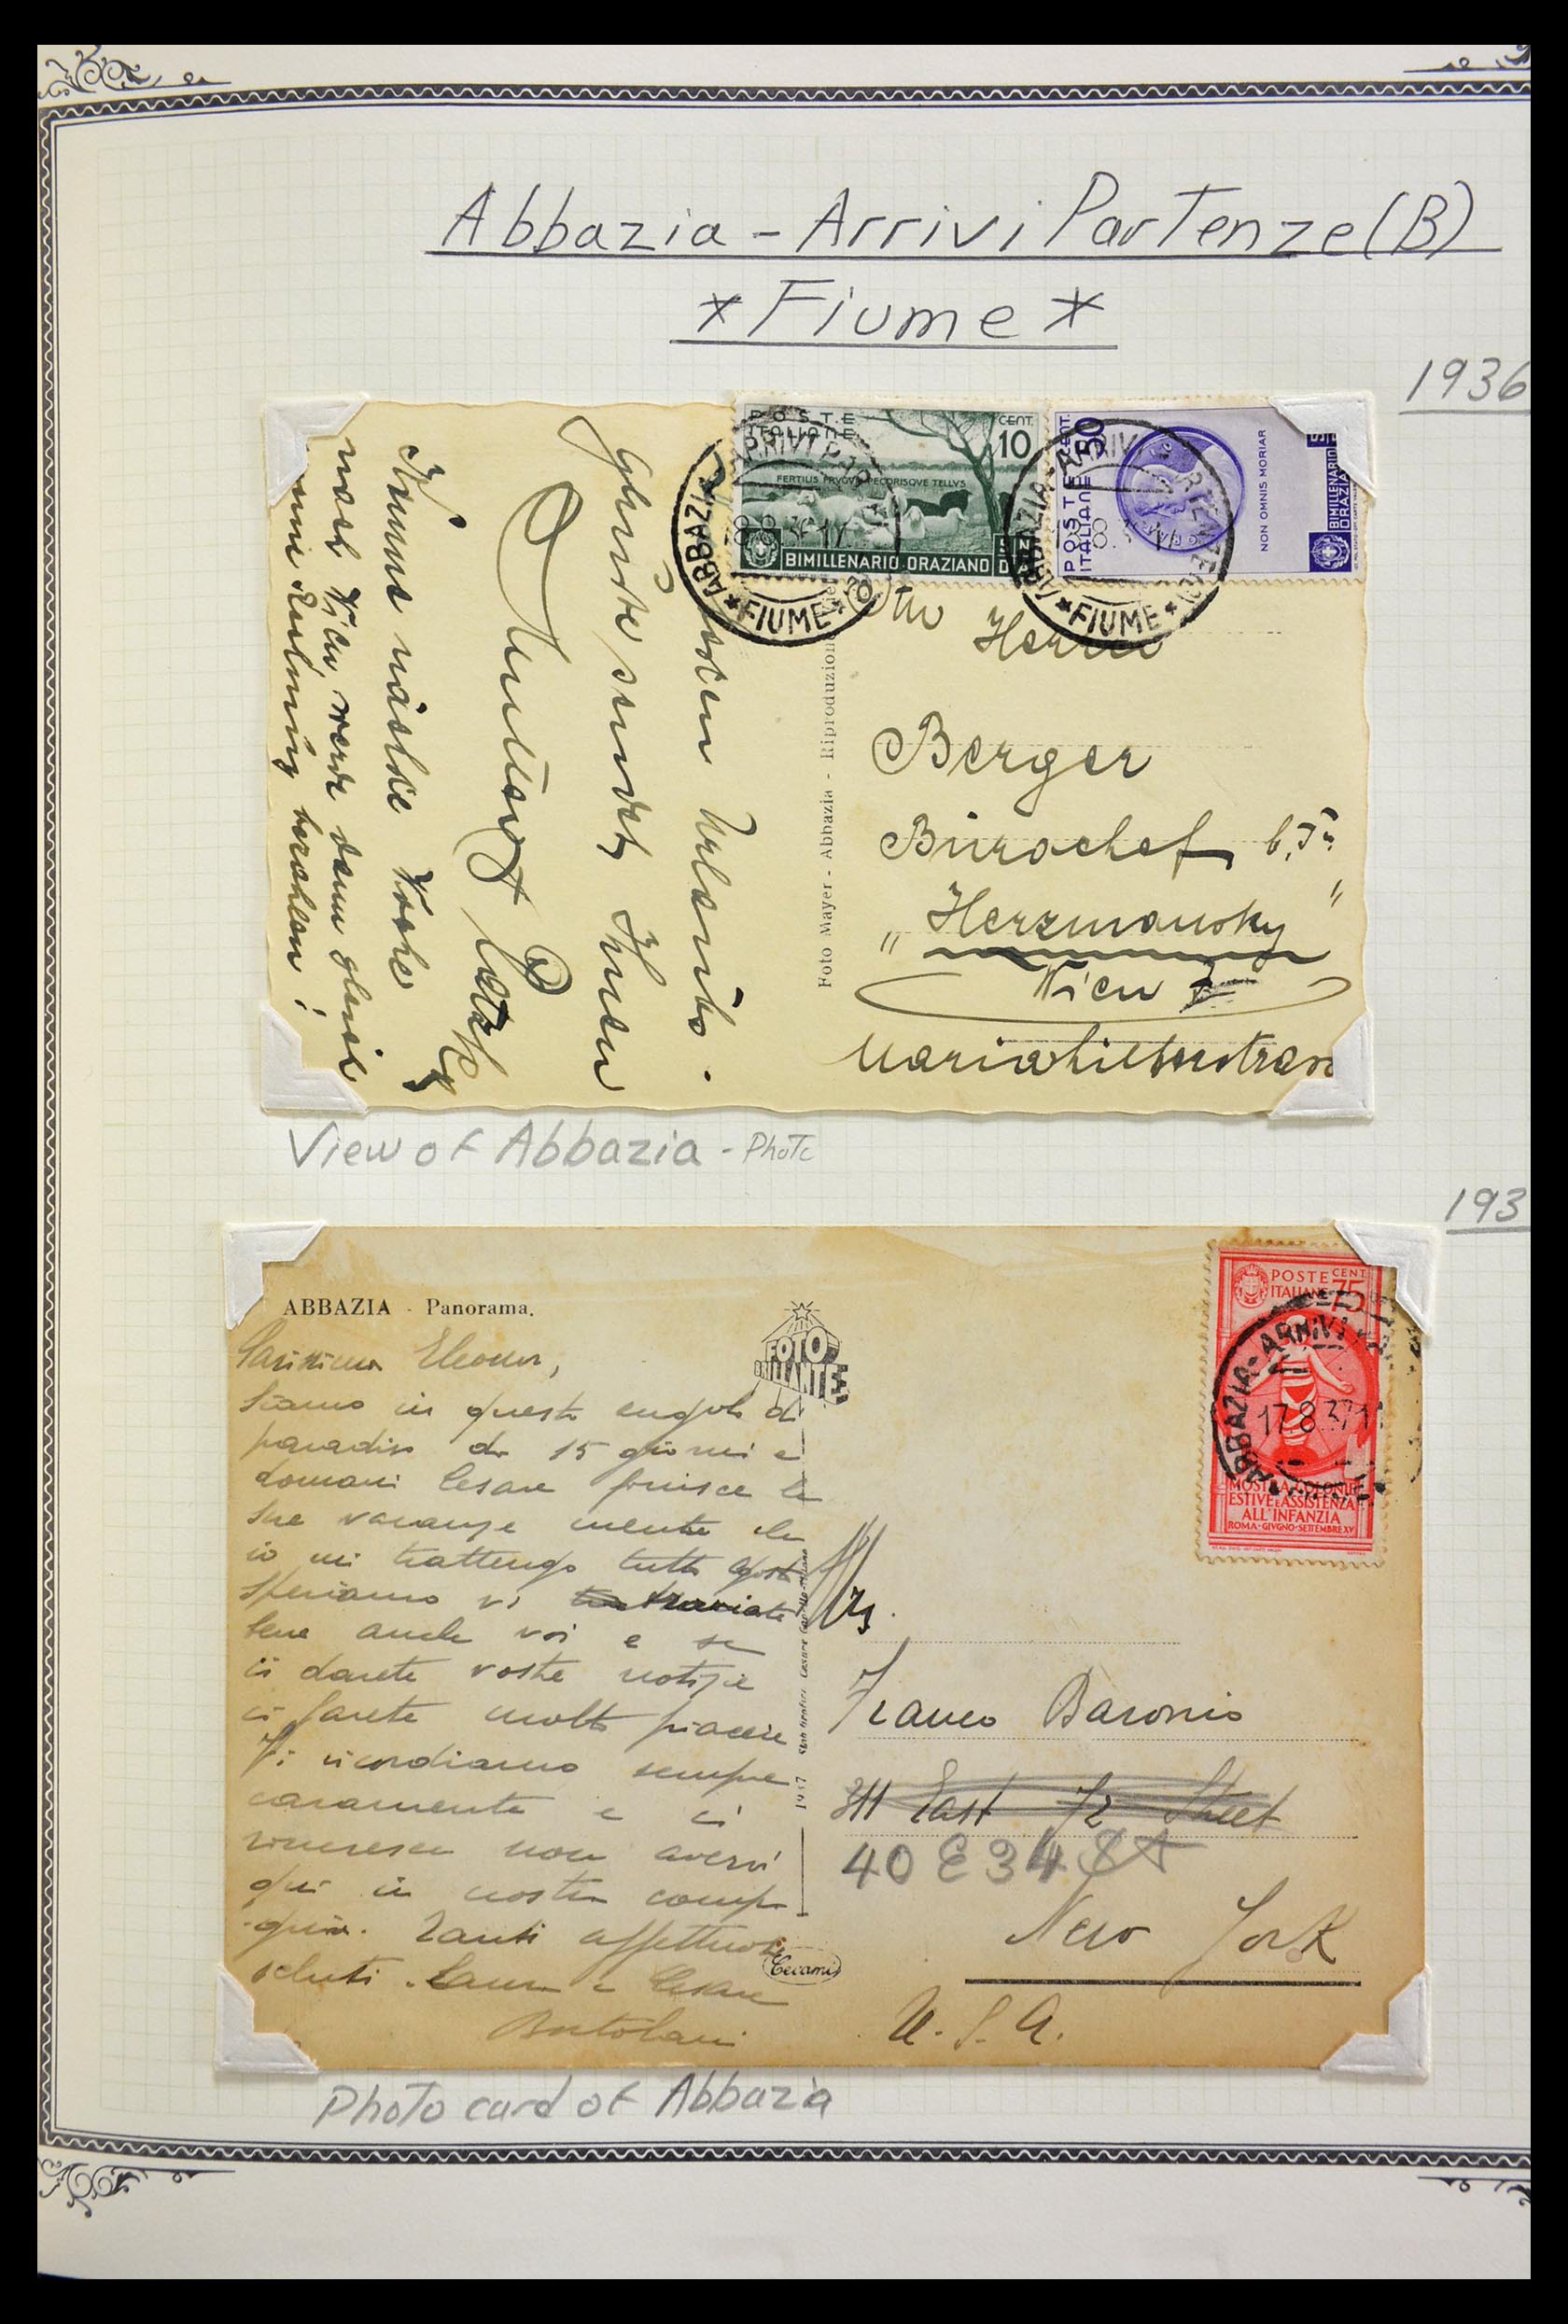 Abbazia - Arrivi Partenze (B)
* Fiume *
1936
POSTE
ITALIANE
CENT.
10
FERTILIS FRVGVM PECORISQVE TELLVS
BIMILLENARIO ORAZIANO
POSTE
ITALIANE
CENT.
50
NON OMNIS MORIAR
BIMILLENARIO
ORAZIANO
ABBAZIA ARRIVI PAR
8.8.36.IV
* FIUME *
ABBAZIA-ARRIVI PARTENZE(B)
* FIUME *
Urlaub.
sendet Ihnen
Komme nächste Woche
nach Wien, werde dann gleich
meine Rechnung bezahlen!
Foto Mayer - Abbazia - Riproduzione
Herrn
Berger
Bürochef b. Fa
„Herzmansky"
Wien
Mariahilferstrasse
View of Abbazia - Photo
193
ABBAZIA - Panorama.
FOTO
BRILLANTE
Carissima Eleonor,
Siamo in questo angolo di
paradiso da 15 giorni e
domani Cesare finisce le
sue vacanze mentre
io mi trattengo tutto agosto
Speriamo vi troviate
bene anche voi e se
ci darete vostre notizie
ci farete molto piacere
Vi ricordiamo sempre
caramente e ci
rincresce non avervi
qui in nostra compa
gnia. Tanti affettuosi
saluti. Laura e Cesare
Bortolani
1937
Cecami
POSTE
ITALIANE
CENT.
75
MOSTRA COLONIE
ESTIVE E ASSISTENZA
ALL'INFANZIA
ROMA-GIVGNO-SETTEMBRE XV
ABBAZIA-ARRIVI
17.8.37
Franco Baronio
311 East 72 Street
40 E 34 St
New York
U.S.A.
Photo card of Abbazia